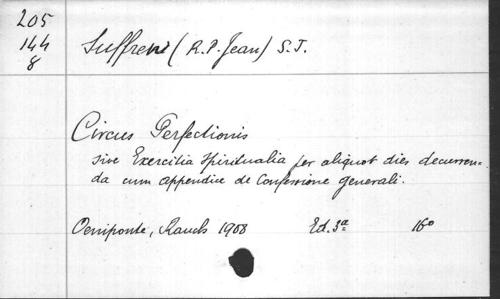 205
144
8
Suffren (R.P. Jean) S.J.
Circus Perfectionis
sive Exercitia Spiritualia per aliquot dies decurren-
da cum appendice de Confessione generali.
Oeniponte, Rauch 1908 Ed. 3ª 16º